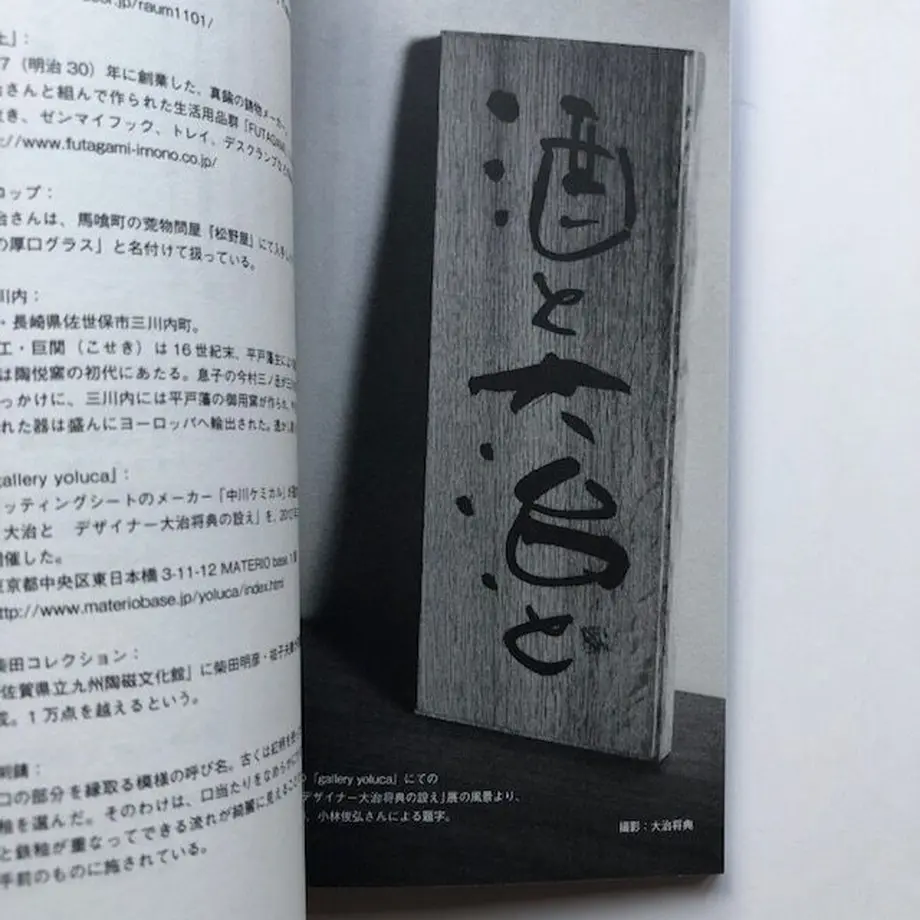 sor.jp/raum1101/
土」：
7（明治30）年に創業した、真鍮の鋳物メーカー、
治さんと組んで作られた生活用品群「FUTAGAMI
抜き、ゼンマイフック、トレイ、デスクランプなど
://www.futagami-imono.co.jp/
コップ：
治さんは、馬喰町の荒物問屋「松野屋」にて入手し
の厚口グラス」と名付けて扱っている。
川内：
・長崎県佐世保市三川内町。
工・巨関（こせき）は16世紀末、平戸藩主によ
は陶悦窯の初代にあたる。息子の今村三ノ丞が三
っかけに、三川内には平戸藩の御用窯が作られ、
れた器は盛んにヨーロッパへ輸出された。透かし
gallery yoluca」：
ッティングシートのメーカー「中川ケミカル」が
大治と　デザイナー大治将典の設え」を、201
開催した。
東京都中央区東日本橋3-11-12 MATERIO base 1
http://www.materiobase.jp/yoluca/index.html
柴田コレクション：
佐賀県立九州陶磁文化館」に柴田明彦・祐子夫妻
成。1万点を越えるという。
口の部分を縁取る模様の呼び名。古くは紅柄を
釉を選んだ。そのわけは、口当たりをなめらかに
と鉄釉が重なってできる流れが綺麗に見える
手前のものに施されている。
酒と大治と
「gallery yoluca」にての
デザイナー大治将典の設え」展の風景より、
、小林俊弘さんによる題字。
撮影：大治将典